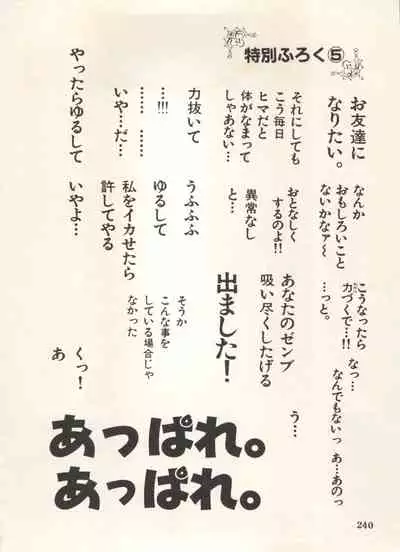 特別ふろく⑤
お友達に
なりたい。
それにしても
こう毎日
ヒマだと
体がなまって
しゃあない…
力抜いて
…!!!
………
いや…だ…
やったらゆるして
なんか
おもしろいこと
ないかなァ〜
おとなしく
するのよ!!
異常なし
と…
うふふふ
ゆるして
私をイカせたら
許してやる
いやよ…
こうなったら
力づくで…!!
…っと。
あなたのゼンブ
吸い尽くしたげる
出ました!
そうか
こんな事を
している場合じゃ
なかった
くっ!
あ
なっ…
なんでもないっ
あ…あのっ
う…
あっぱれ。
あっぱれ。
240